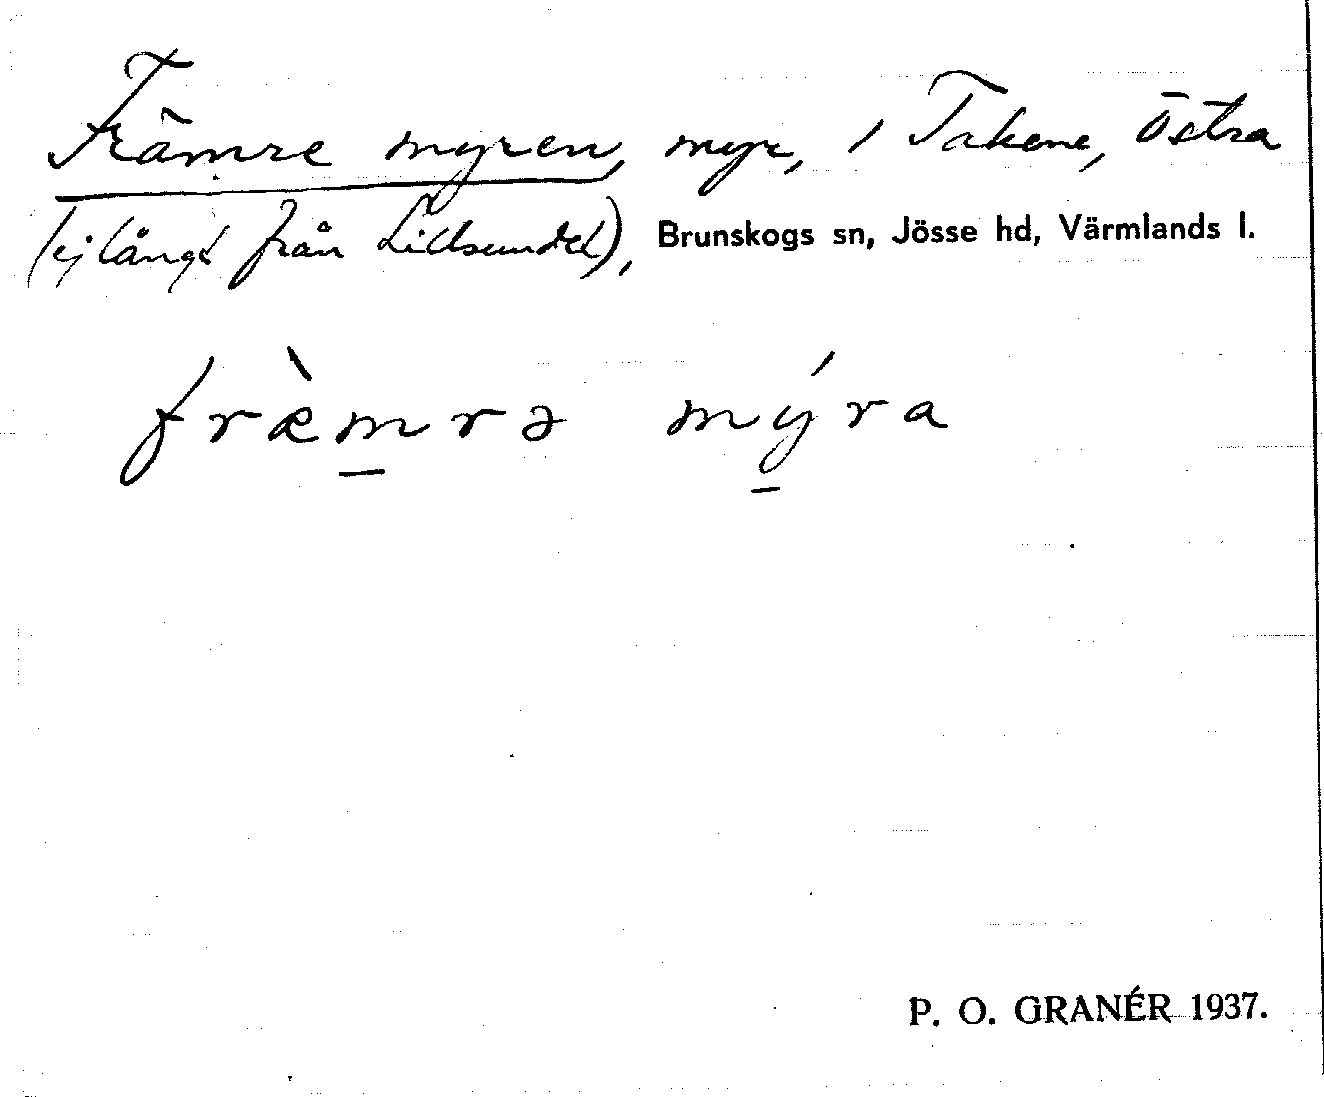 Främre myren, myr, i Takene, Östra
(ej långt från Lillsundet), Brunskogs sn, Jösse hd, Värmlands l.
fræ̀m̠rə mý̠ra
P. O. GRANÉR 1937.